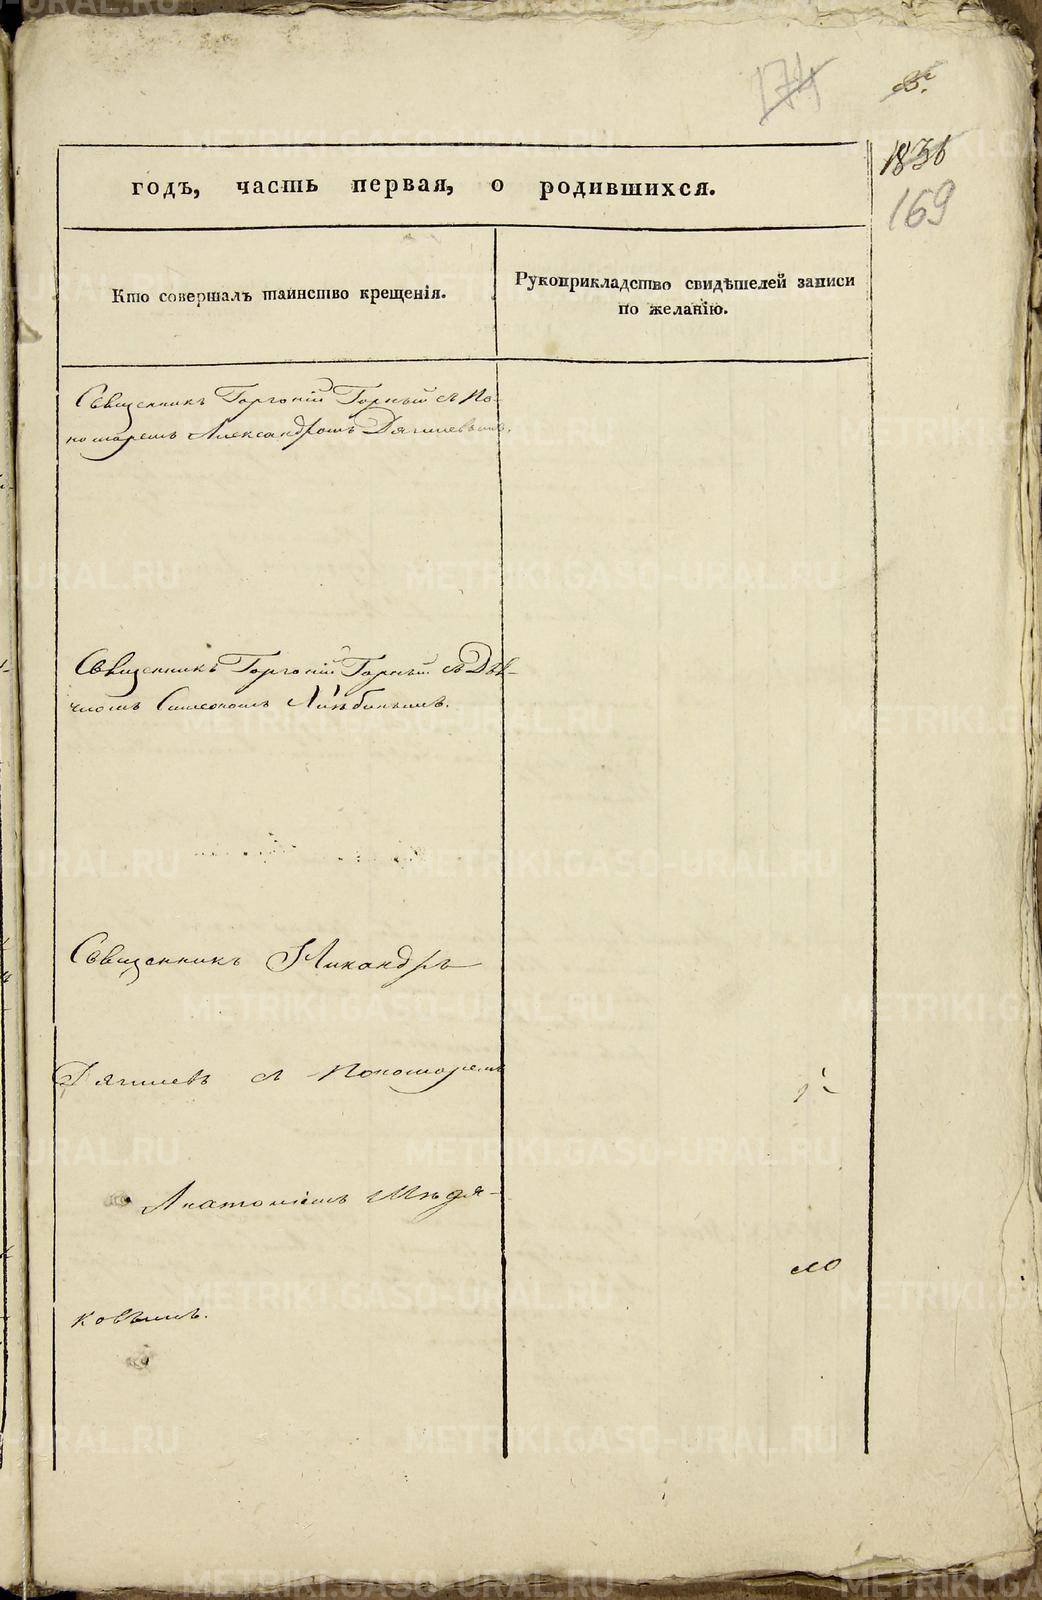 174
1836
169
годъ, часть первая, о родившихся.
Кто совершалъ таинство крещенія.
Рукоприкладство свидѣтелей записи
по желанію.
Священникъ Горгоній Горный съ По-
номаремъ Александромъ Дягилевымъ.
Священникъ Горгоній Горный съ Дья-
чкомъ Симеономъ
Священникъ Никандръ
Дягилевъ съ Пономаремъ
Анатоліемъ Шедя-
ковымъ.
METRIKI.GASO-URAL.RU